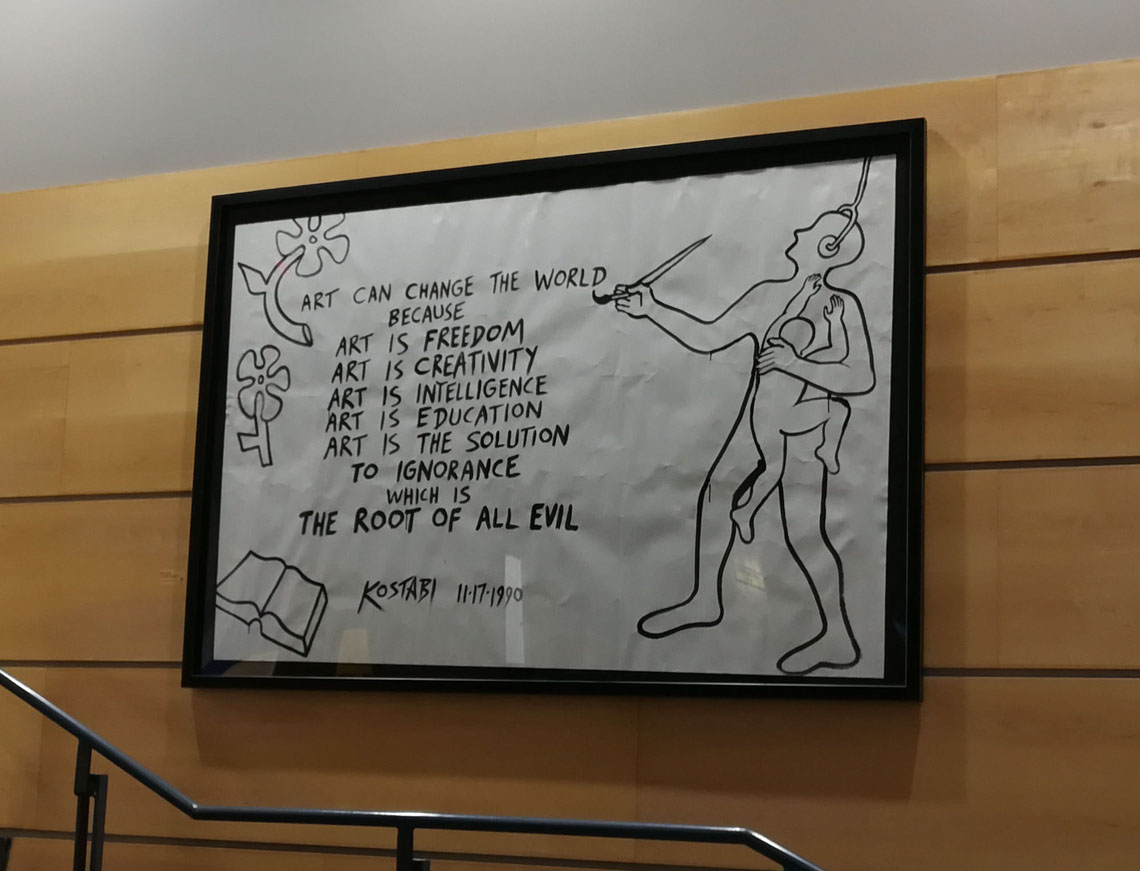 ART CAN CHANGE THE WORLD
BECAUSE
ART IS FREEDOM
ART IS CREATIVITY
ART IS INTELLIGENCE
ART IS EDUCATION
ART IS THE SOLUTION
TO IGNORANCE
WHICH IS
THE ROOT OF ALL EVIL
KOSTABI 11·17·1990